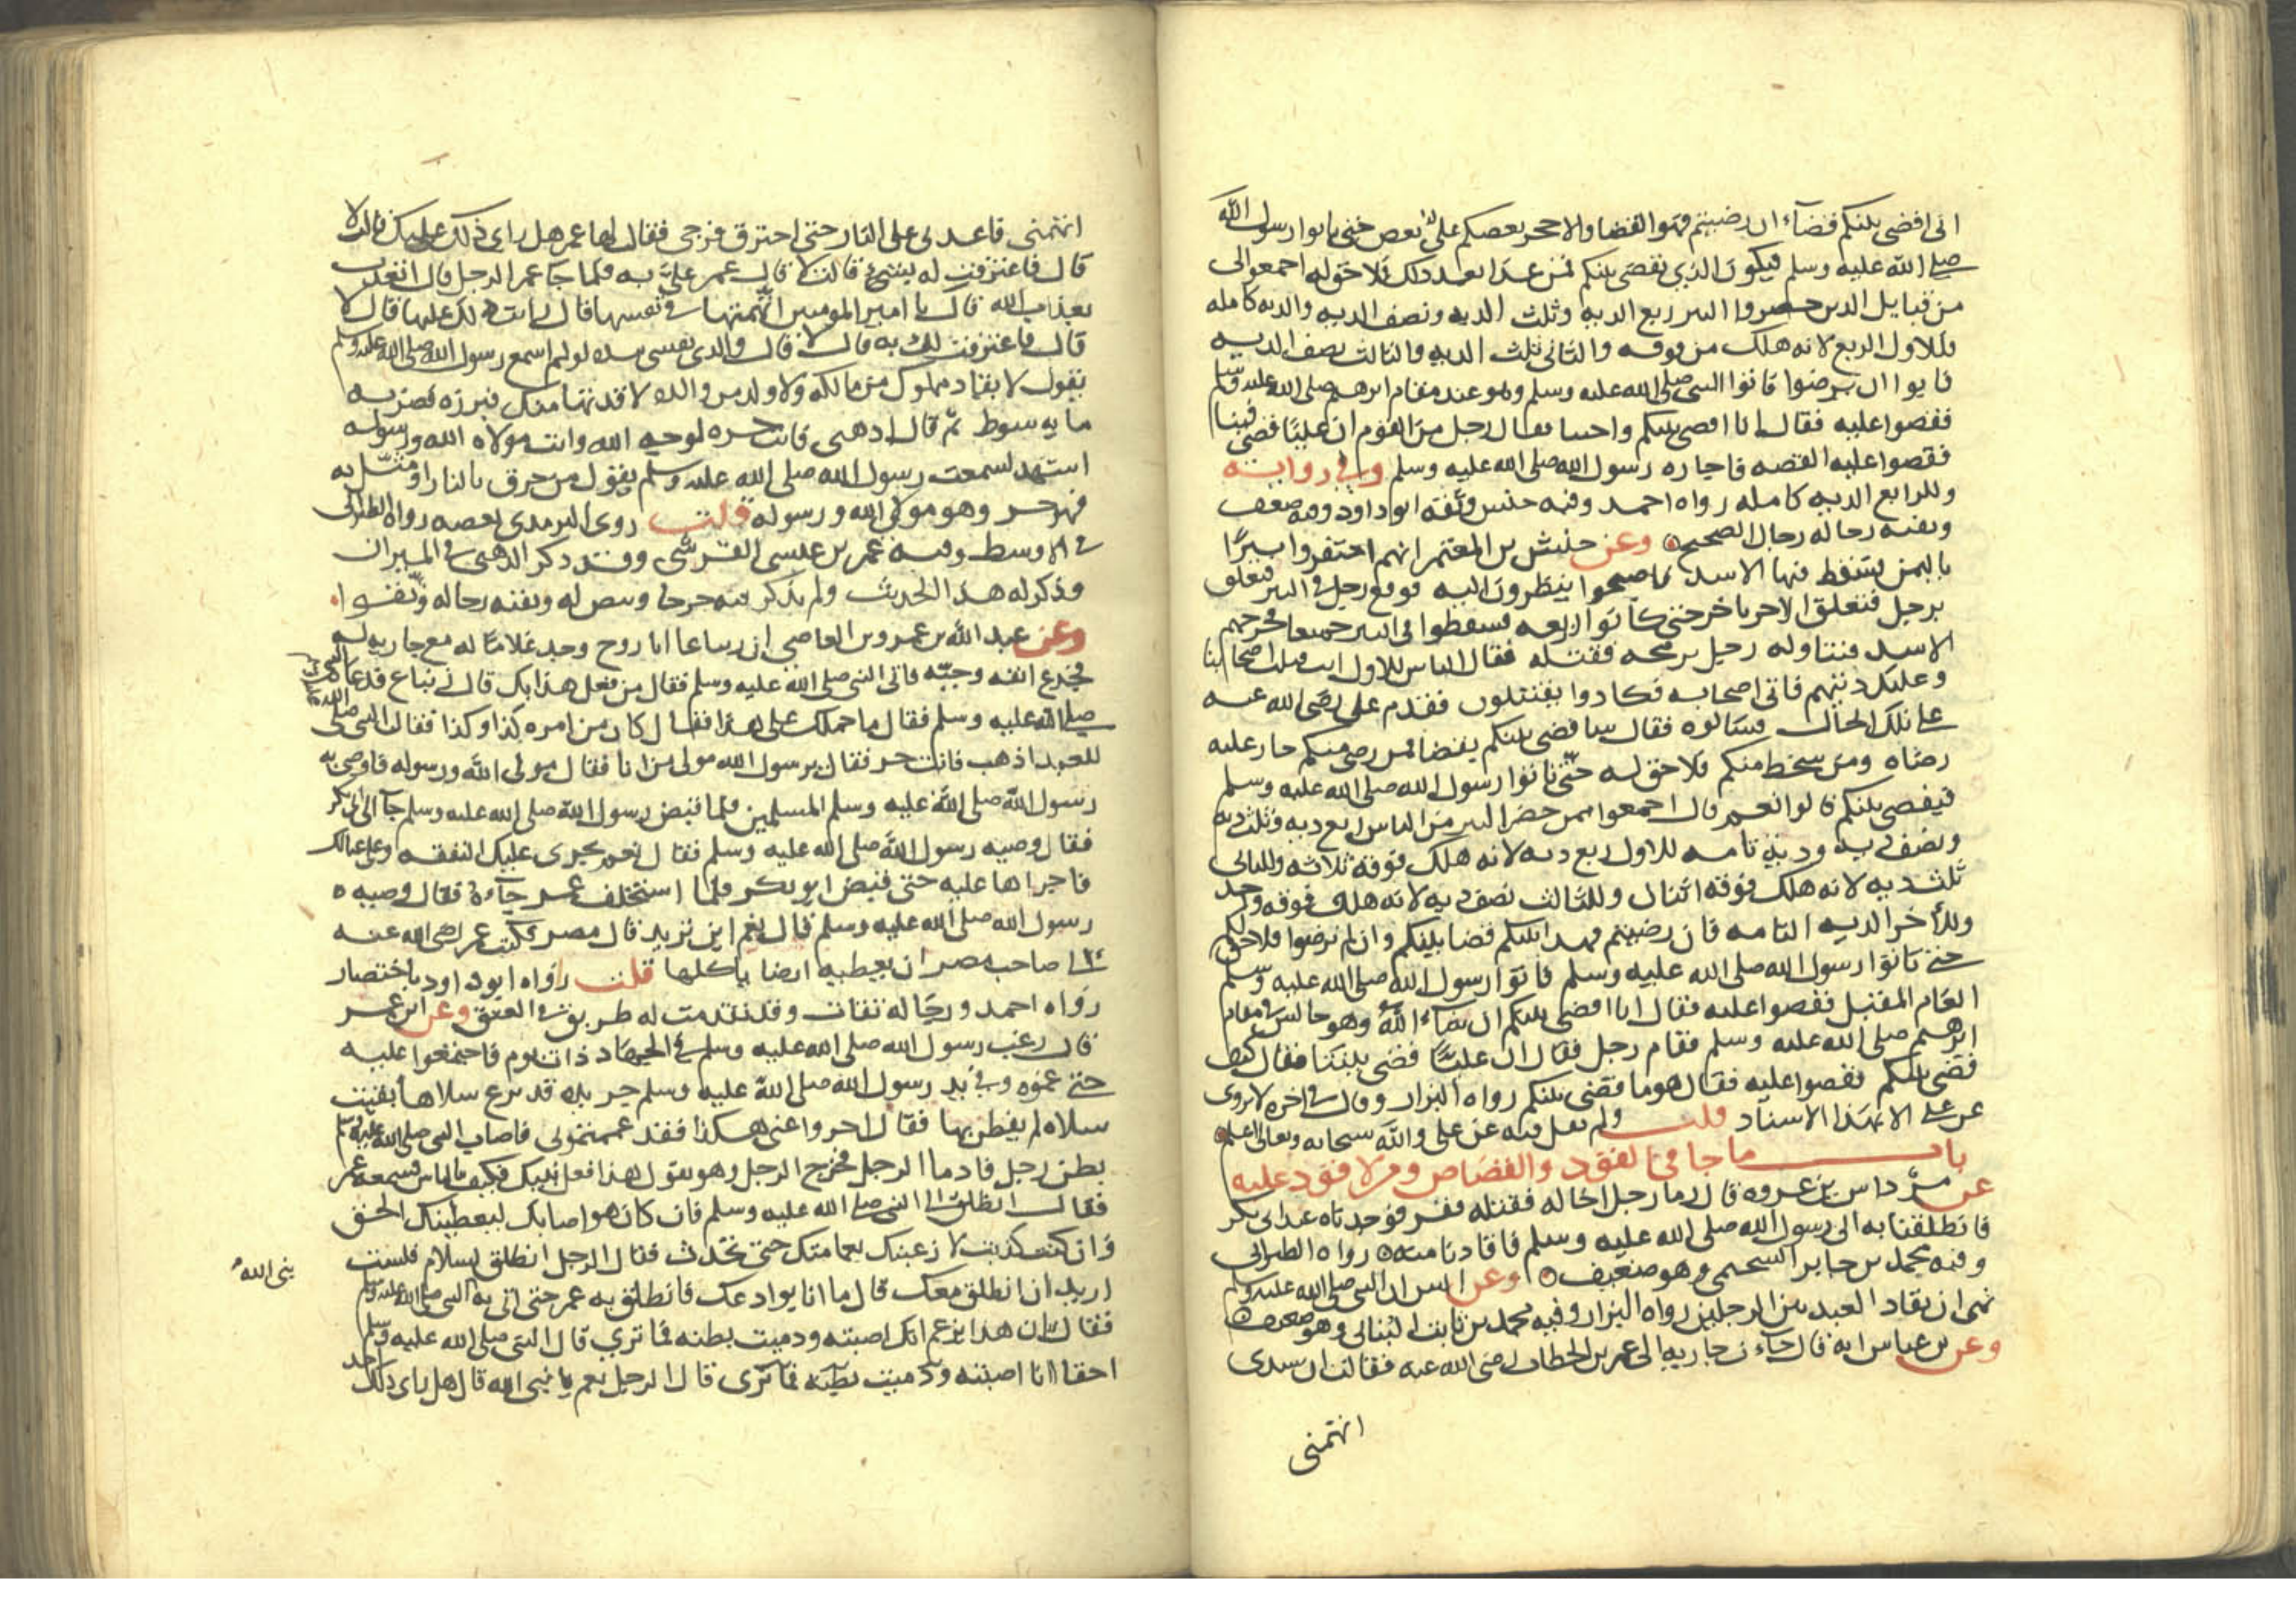 انى اقضى بينكم قضآء ان رضيتم فهو القضا والا حجر بعضكم على بعض حتى تاتوا رسول الله
صلى الله عليه وسلم فيكون الذي يقضى بينكم فمن عدا بعد ذلك فلا حق له اجمعوا الى
من قبايل الدين حضروا البير ربع الديه وثلث الديه ونصف الديه والديه كامله
فللاول الربع لانه هلك من فوقه والثانى ثلث الديه والثالث نصف الديه
فابوا ان يرضوا فاتوا النبى صلى الله عليه وسلم وهو عند مقام ابرهيم صلى الله عليه وسلم
فقصوا عليه فقال انا اقضى بينكم واحتبا فقال رجل من القوم ان عليًا قضى فينا
فقصوا عليه القصه فاجازه رسول الله صلى الله عليه وسلم وفى رواية
وللرابع الديه كامله رواه احمد وفيه حنش وثقه ابو داود وفيه ضعف
وبقيه رجاله رجال الصحيح وعن حنش بن المعتمر انهم احتفروا بيرًا
باليمن فسقط فيها الاسد فاصبحوا ينظرون اليه فوقع رجل فى البير فتعلق
برجل فتعلق الاخر باخر حتى كانوا اربعه فسقطوا فى البير جميعا فجرحهم
الاسد فتناوله رجل برمحه فقتله فقال الناس للاول انت قتلت اصحابنا
وعليك ديتهم فاتى اصحابه فكادوا يقتتلون فقدم على رضى الله عنه
على تلك الحال فسالوه فقال ساقضى بينكم بقضا فمن رضى منكم جاز عليه
رضاه ومن سخط منكم فلا حق له حتى تاتوا رسول الله صلى الله عليه وسلم
فيقضى بينكم قالوا نعم قال اجمعوا ممن حضر البير من الناس ربع ديه وثلث ديه
ونصف ديه ودية تامه للاول ربع ديه لانه هلك فوقه ثلاثه وللثانى
ثلث ديه لانه هلك فوقه اثنان وللثالث نصف ديه لانه هلك فوقه واحد
وللآخر الديه التامه فان رضيتم فهذا بينكم قضا بينكم وان لم ترضوا فلا حق لكم
حتى تاتوا رسول الله صلى الله عليه وسلم فاتوا رسول الله صلى الله عليه وسلم
العام المقبل فقصوا عليه فقال انا اقضى بينكم ان شاء الله وهو جالس فى مقام
ابرهيم صلى الله عليه وسلم فقام رجل فقال ان عليًّا قضى بيننا فقال كيف
قضى بينكم فقصوا عليه فقال هو ما قضى بينكم رواه البزار وقال فى اخره لا يروى
عن على الا بهذا الاسناد قلت ولم يقل فيه عن على والله سبحانه وتعالى اعلم
باب ما جا فى القود والقصاص ومن لا قود عليه
عن مرداس بن عروه قال رما رجل اخا له فقتله ففر فوجدناه عند ابى بكر
فانطلقنا به الى رسول الله صلى الله عليه وسلم فاقادنا منه رواه الطبرانى
وفيه محمد بن جابر السحيمى وهو ضعيف وعن انس ان النبى صلى الله عليه وسلم
نهى ان يقاد العبد بين الرجلين رواه البزار وفيه محمد بن ثابت البنانى وهو ضعيف
وعن بن عباس انه قال جآءت جاريه الى عمر بن الخطاب رضى الله عنه فقالت ان سيدى
اتهمنى
اتهمنى فاقعدنى على النار حتى احترق فرجى فقال لها عمر هل راى ذلك عليك قالت لا
قال فاعترفت له بشئ قالت لا قال عمر علىّ به فلما جا عمر الرجل قال اتعذب
بعذاب الله قال يا امير المومنين اتهمتها فى نفسها قال رايت ذلك عليها قال لا
قال فاعترفت لك به قال لا قال والذى نفسى بيده لو لم اسمع رسول الله صلى الله عليه وسلم
يقول لا يقاد مملوك من مالكه ولا ولد من والده لاقدتها منك فبرزه فضربه
مايه سوط ثم قال اذهبى فانت حره لوجه الله وانت مولاه الله ورسوله
اشهد لسمعت رسول الله صلى الله عليه وسلم يقول من حرق بالنار او مثّل به
فهو حر وهو مولى الله ورسوله قلت روى الترمدى بعضه رواه الطبرانى
فى الاوسط وفيه عمر بن عيسى القرشى وقد ذكر الذهبى فى الميزان
وذكر له هذا الحديث ولم يذكر فيه جرحا وبيض له وبقيه رجاله وثقوا
وعن عبد الله بن عمرو بن العاصى ان زنباعا ابا روح وجد غلامًا له مع جاريه له
فجدع انفه وجبّه فاتى النبى صلى الله عليه وسلم فقال من فعل هذا بك قال زنباع فدعاه النبى
صلى الله عليه وسلم فقال ما حملك على هذا فقال كان من امره كذا وكذا فقال النبى صلى
للعبد اذهب فانت حر فقال يرسول الله مولى من انا فقال مولى الله ورسوله فاوصى به
رسول الله صلى الله عليه وسلم المسلمين فلما قبض رسول الله صلى الله عليه وسلم جآ الى ابى بكر
فقال وصيه رسول الله صلى الله عليه وسلم فقال نعم نجرى عليك النفقه وعلى عيالك
فاجراها عليه حتى قبض ابو بكر فلما استخلف عمر جآءه فقال وصيه
رسول الله صلى الله عليه وسلم قال نعم اين تريد قال مصر فكتب عمر رضى الله عنه
الى صاحب مصر ان يعطيه ارضا ياكلها قلت رواه ابو داود باختصار
رواه احمد ورجاله ثقات وقد تقدمت له طريق فى العتق وعن ابن عمر
قال رغب رسول الله صلى الله عليه وسلم فى الجهاد ذات يوم فاجتمعوا عليه
حتى غموه وفى يد رسول الله صلى الله عليه وسلم جريده قد نزع سلاها بقيت
سلاه لم يفطن بها فقال اخروا عنى هكذا فقد غممتمونى فاصاب النبى صلى الله عليه وسلم
بطن رجل فادما الرجل فخرج الرجل وهو يقول هذا فعل نبيك فكيف بالناس فسمعه عمر
فقال انطلق الى النبى صلى الله عليه وسلم فان كان هو اصابك ليعطينك الحق
وان كنت كذبت لارغمنك بعمامتك حتى تحدث فقال الرجل انطلق بسلام فلست
اريد ان انطلق معك قال ما انا بوادعك فانطلق به عمر حتى اتى به النبى صلى الله عليه وسلم
نبى الله
فقال ان هذا يزعم انك اصبته ودميت بطنه فما ترى قال النبى صلى الله عليه وسلم
احقا انا اصبته ودميت بطنه فما ترى قال الرجل نعم يا نبى الله قال هل راى ذلك احد